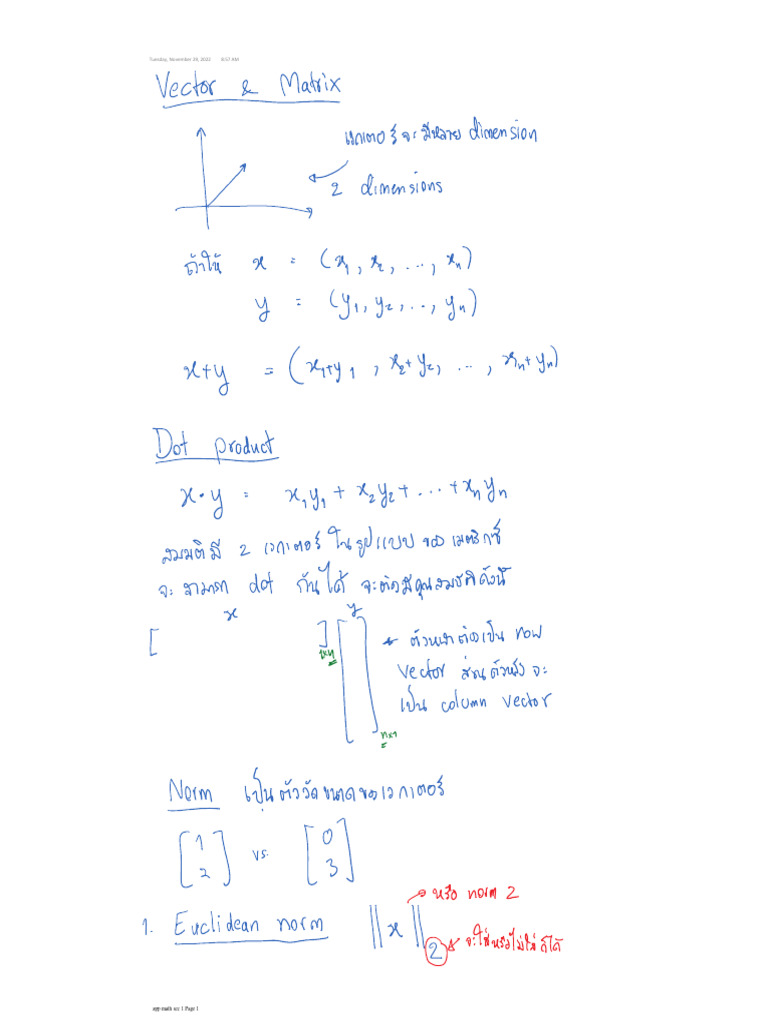 Tuesday, November 29, 2022 8:57 AM
Vector & Matrix
เวกเตอร์จะมีหลาย dimension
2 dimensions
ถ้าให้ x = (x₁, x₂, ..., xₙ)
y = (y₁, y₂, ..., yₙ)
x+y = (x₁+y₁, x₂+y₂, ..., xₙ+yₙ)
Dot product
x·y = x₁y₁ + x₂y₂ + ... + xₙyₙ
สมมติมี 2 เวกเตอร์ ในรูปแบบของเมตริกซ์
จะสามารถ dot กันได้ จะต้องมีคุณสมบัติดังนี้
x y
[ ]1×n [ ]n×1
ตัวหน้าต้องเป็น row
vector ส่วนตัวหลังจะ
เป็น column vector
Norm เป็นตัววัดขนาดของเวกเตอร์
[1 2] vs. [0 3]
หรือ norm 2
1. Euclidean norm ||x||₂ จะใช้หรือไม่ใช้ก็ได้